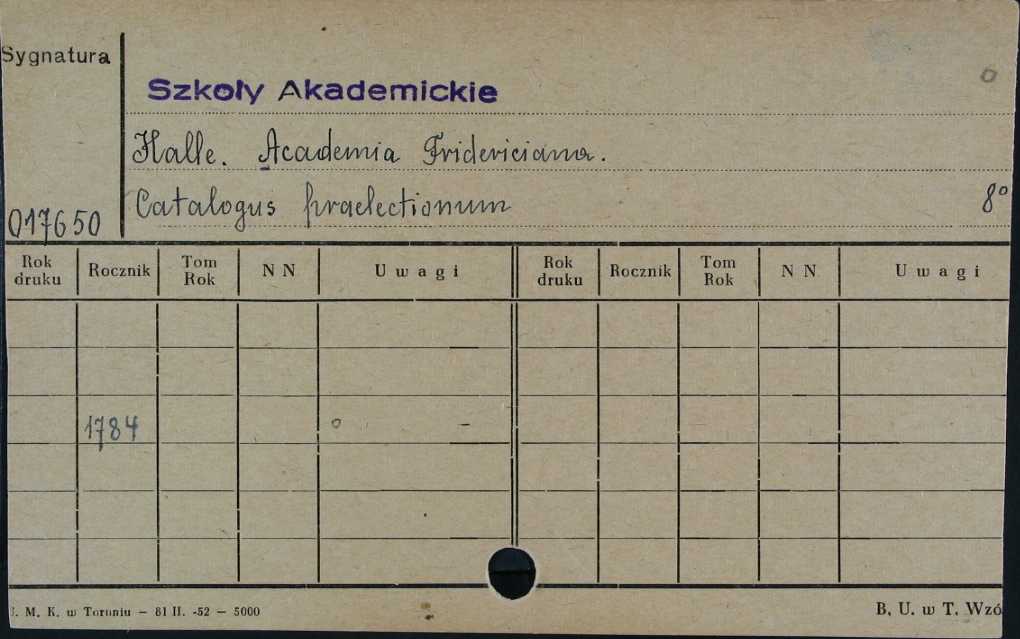 Sygnatura
Szkoły Akademickie
o
Halle. Academia Fridericiana.
Catalogus praelectionum 8º
017650
Rok druku Rocznik Tom Rok N N Uwagi Rok druku Rocznik Tom Rok N N Uwagi
1784 o -
U. M. K. w Toruniu — 81 II. -52 — 5000
B. U. w T. Wzó